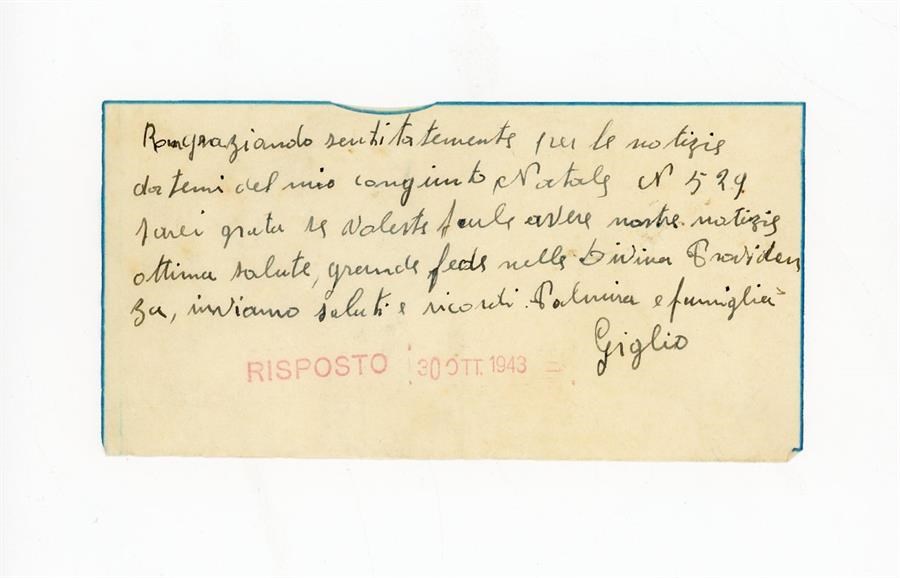 Ringraziando sentitatemente per le notizie
datemi del mio congiunto Natale N 529
sarei grata se voleste farle avere nostre notizie
ottima salute, grande fede nella Divina Providen
za, inviamo saluti e ricordi. Palmira e famiglia
Giglio
RISPOSTO 30 OTT. 1943